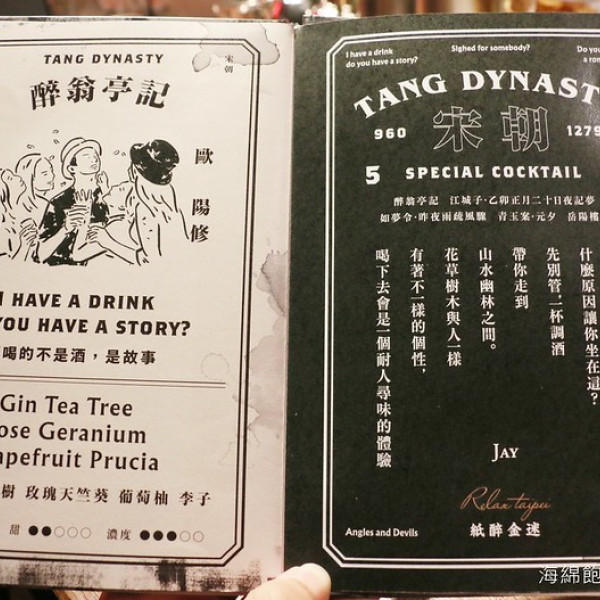 TANG DYNASTY
宋朝
醉翁亭記
歐陽修
I HAVE A DRINK
YOU HAVE A STORY?
喝的不是酒，是故事
Gin Tea Tree
ose Geranium
apefruit Prucia
樹 玫瑰天竺葵 葡萄柚 李子
甜 ●●○○○ 濃度 ●●●○○
I have a drink
do you have a story?
Sighed for somebody?
Do you
a rom
TANG DYNAST
960 宋朝 1279
5 SPECIAL COCKTAIL
醉翁亭記 江城子·乙卯正月二十日夜記夢
如夢令·昨夜雨疏風驟 青玉案·元夕 岳陽樓
什麼原因讓你坐在這？
先別管一杯調酒
帶你走到
山水幽林之間。
花草樹木與人一樣
有著不一樣的個性，
喝下去會是一個耐人尋味的體驗
JAY
Relax taipei
紙醉金迷
Angles and Devils
海綿飽